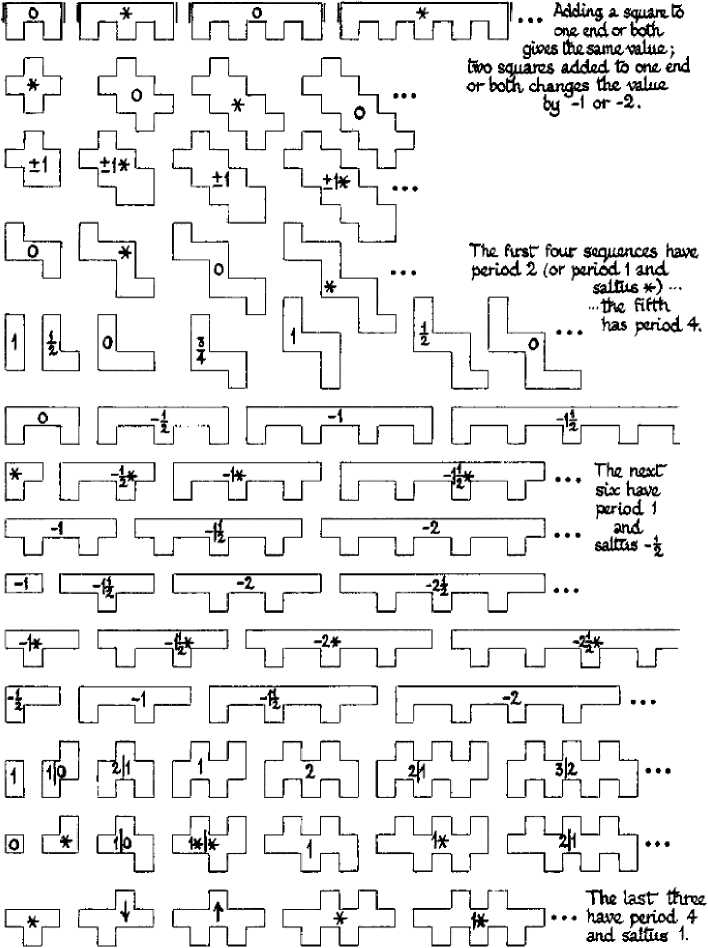 0 * 0 * ... Adding a square to
one end or both
gives the same value;
two squares added to one end
or both changes the value
by -1 or -2.
* 0 * 0 ...
±1 ±1* ±1 ±1* ...
0 * 0 * ...
The first four sequences have
period 2 (or period 1 and
saltus *) ...
... the fifth
has period 4.
1 1/2 0 3/4 1 1/2 0 ...
0 -1/2 -1 -1 1/2
* -1/2* -1* -1 1/2* ...
The next
six have
period 1
and
saltus -1/2
-1 -1 1/2 -2 ...
-1 -1 1/2 -2 -2 1/2 ...
-1* -1 1/2* -2* -2 1/2*
-1/2 -1 -1 1/2 -2 ...
1 1|0 2|1 1 2 2|1 3|2 ...
0 * 1|0 1*|* 1 1* 2|1 ...
* ↓ ↑ * 1* ...
The last three
have period 4
and saltus 1.